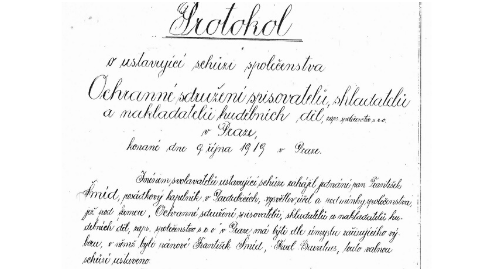 Protokol
o ustavující schůzi společenstva
Ochranné sdružení spisovatelů, skladatelů
a nakladatelů hudebních děl, zaps. společenstvo s r. o.
v Praze,
konané dne 9 října 1919 v Praze.
Jménem svolavatelů ustavující schůze zahájil jednání pan František
Šmíd, posádkový kapelník v Pardubicích, vysvětlov účel a podmínky společenstva,
jež pod jménem „Ochranné sdružení spisovatelů, skladatelů a nakladatelů hu-
debních děl, zaps. společenstvo s r. o. v Praze, má býti dle úmyslu zařizujícího vý
boru, v němž byli pánové František Šmíd, Karel Barvitius, touto valnou
schůzí ustaveno.